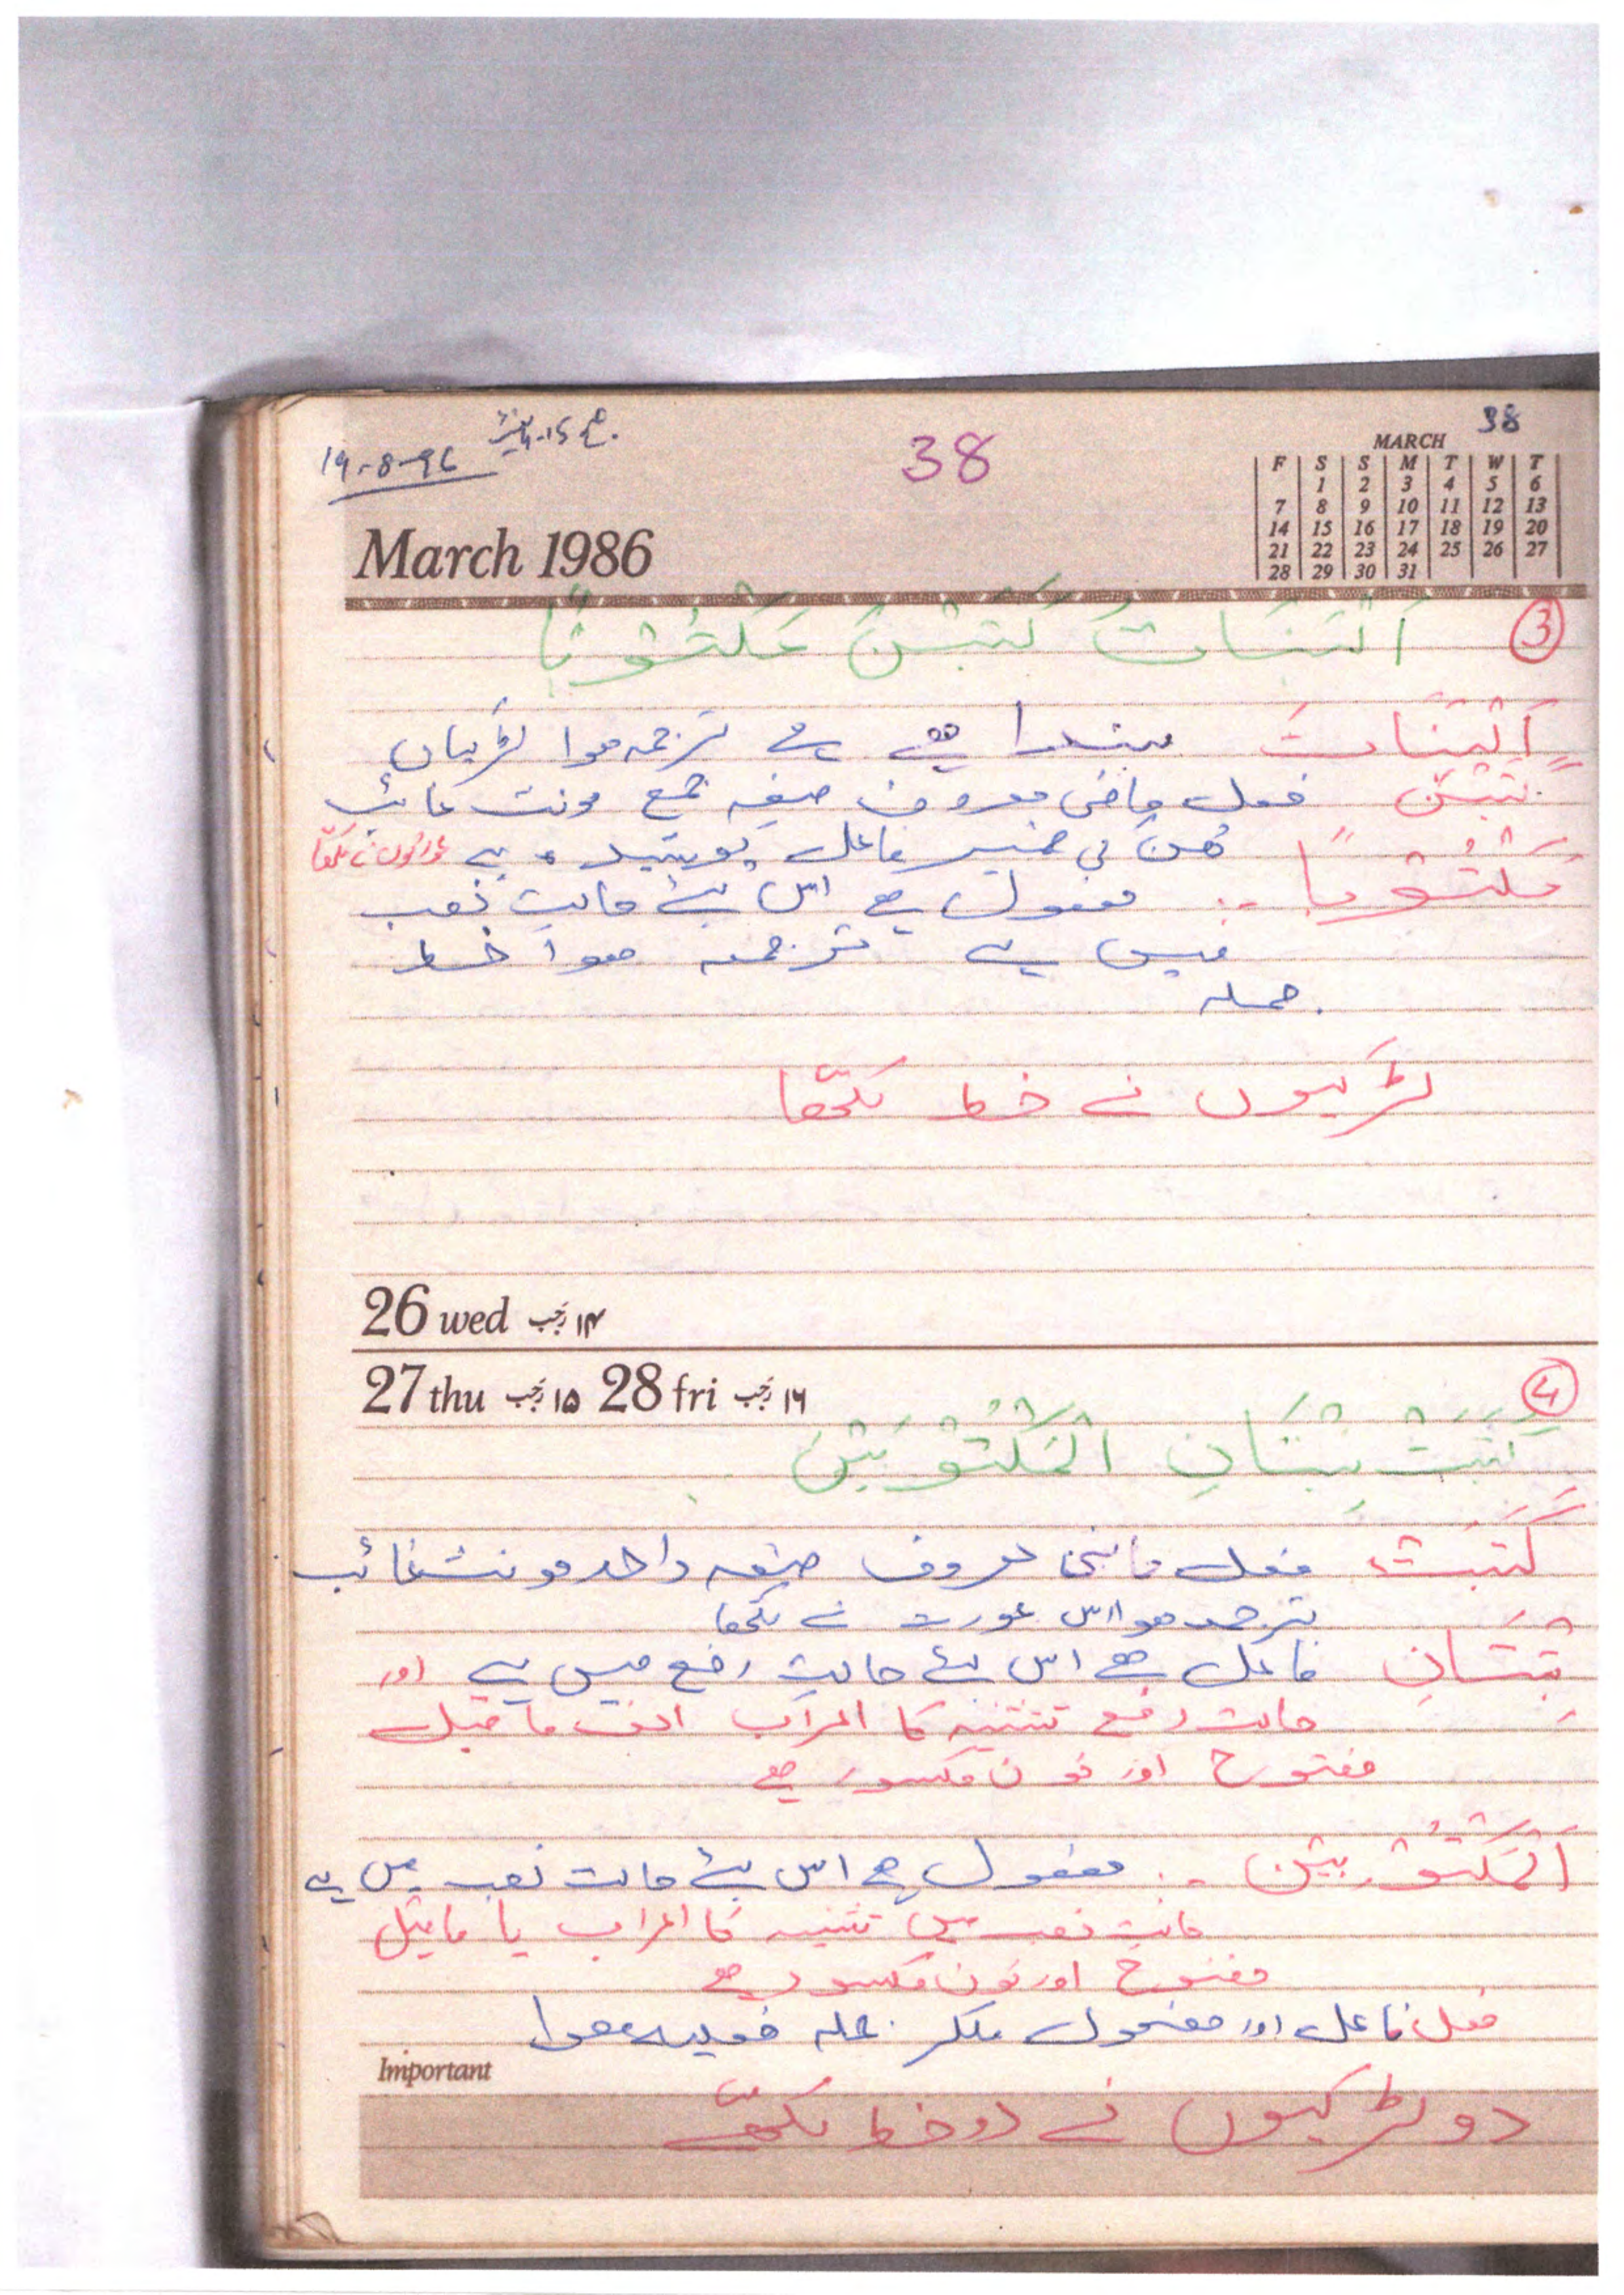 38
19-8-96
38
MARCH
F S S M T W T
1 2 3 4 5 6
7 8 9 10 11 12 13
14 15 16 17 18 19 20
21 22 23 24 25 26 27
28 29 30 31
March 1986
③ اَلْبَنَاتُ كَتَبْنَ مَكْتُوْبًا
اَلْبَنَاتُ مبتدا ھے ترجمہ ھوا لڑکیاں
كتبْنَ فعل ماضی معروف صیغہ جمع مونث غائب
ھُنَّ کی ضمیر فاعل پوشیدہ ہے عورتوں نے لکھّا
مَكْتُوْبًا :۔ مفعول ھے اس لئے حالتِ نصب
میں ہے ترجمہ ھوا خط
جملہ
لڑکیوں نے خط لکھّا
26 wed ۱۴ رجب
27 thu ۱۵ رجب 28 fri ۱۶ رجب
④
كَتَبَتْ بِنْتَانِ الْمَكْتُوْبَيْنِ
كَتَبَتْ فعل ماضی معروف صیغہ واحد مونث غائب
ترجمہ ھوا اس عورت نے لکھا
بِنْتَانِ فاعل ھے اس لئے حالتِ رفع میں ہے اور
حالت رفع تثنیہ کا اعراب الف ماقبل
مفتوح اور نون مکسور ھے
اَلْمَكْتُوْبَيْنِ :۔ مفعول ھے اس لئے حالت نصب میں ہے
حالتِ نصب میں تثنیہ کا اعراب یا ماقبل
مفتوح اور نون مکسور ھے
فعل فاعل اور مفعول ملکر جملہ فعلیہ ھوا
Important
دو لڑکیوں نے دو خط لکھّے